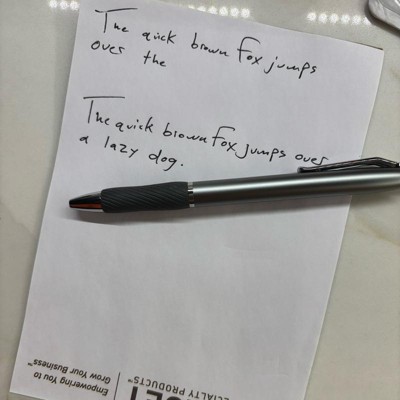 The quick brown fox jumps
over the
The quick brown fox jumps over
a lazy dog.
Empowering You to
Grow Your Business™
PRODUCTS™